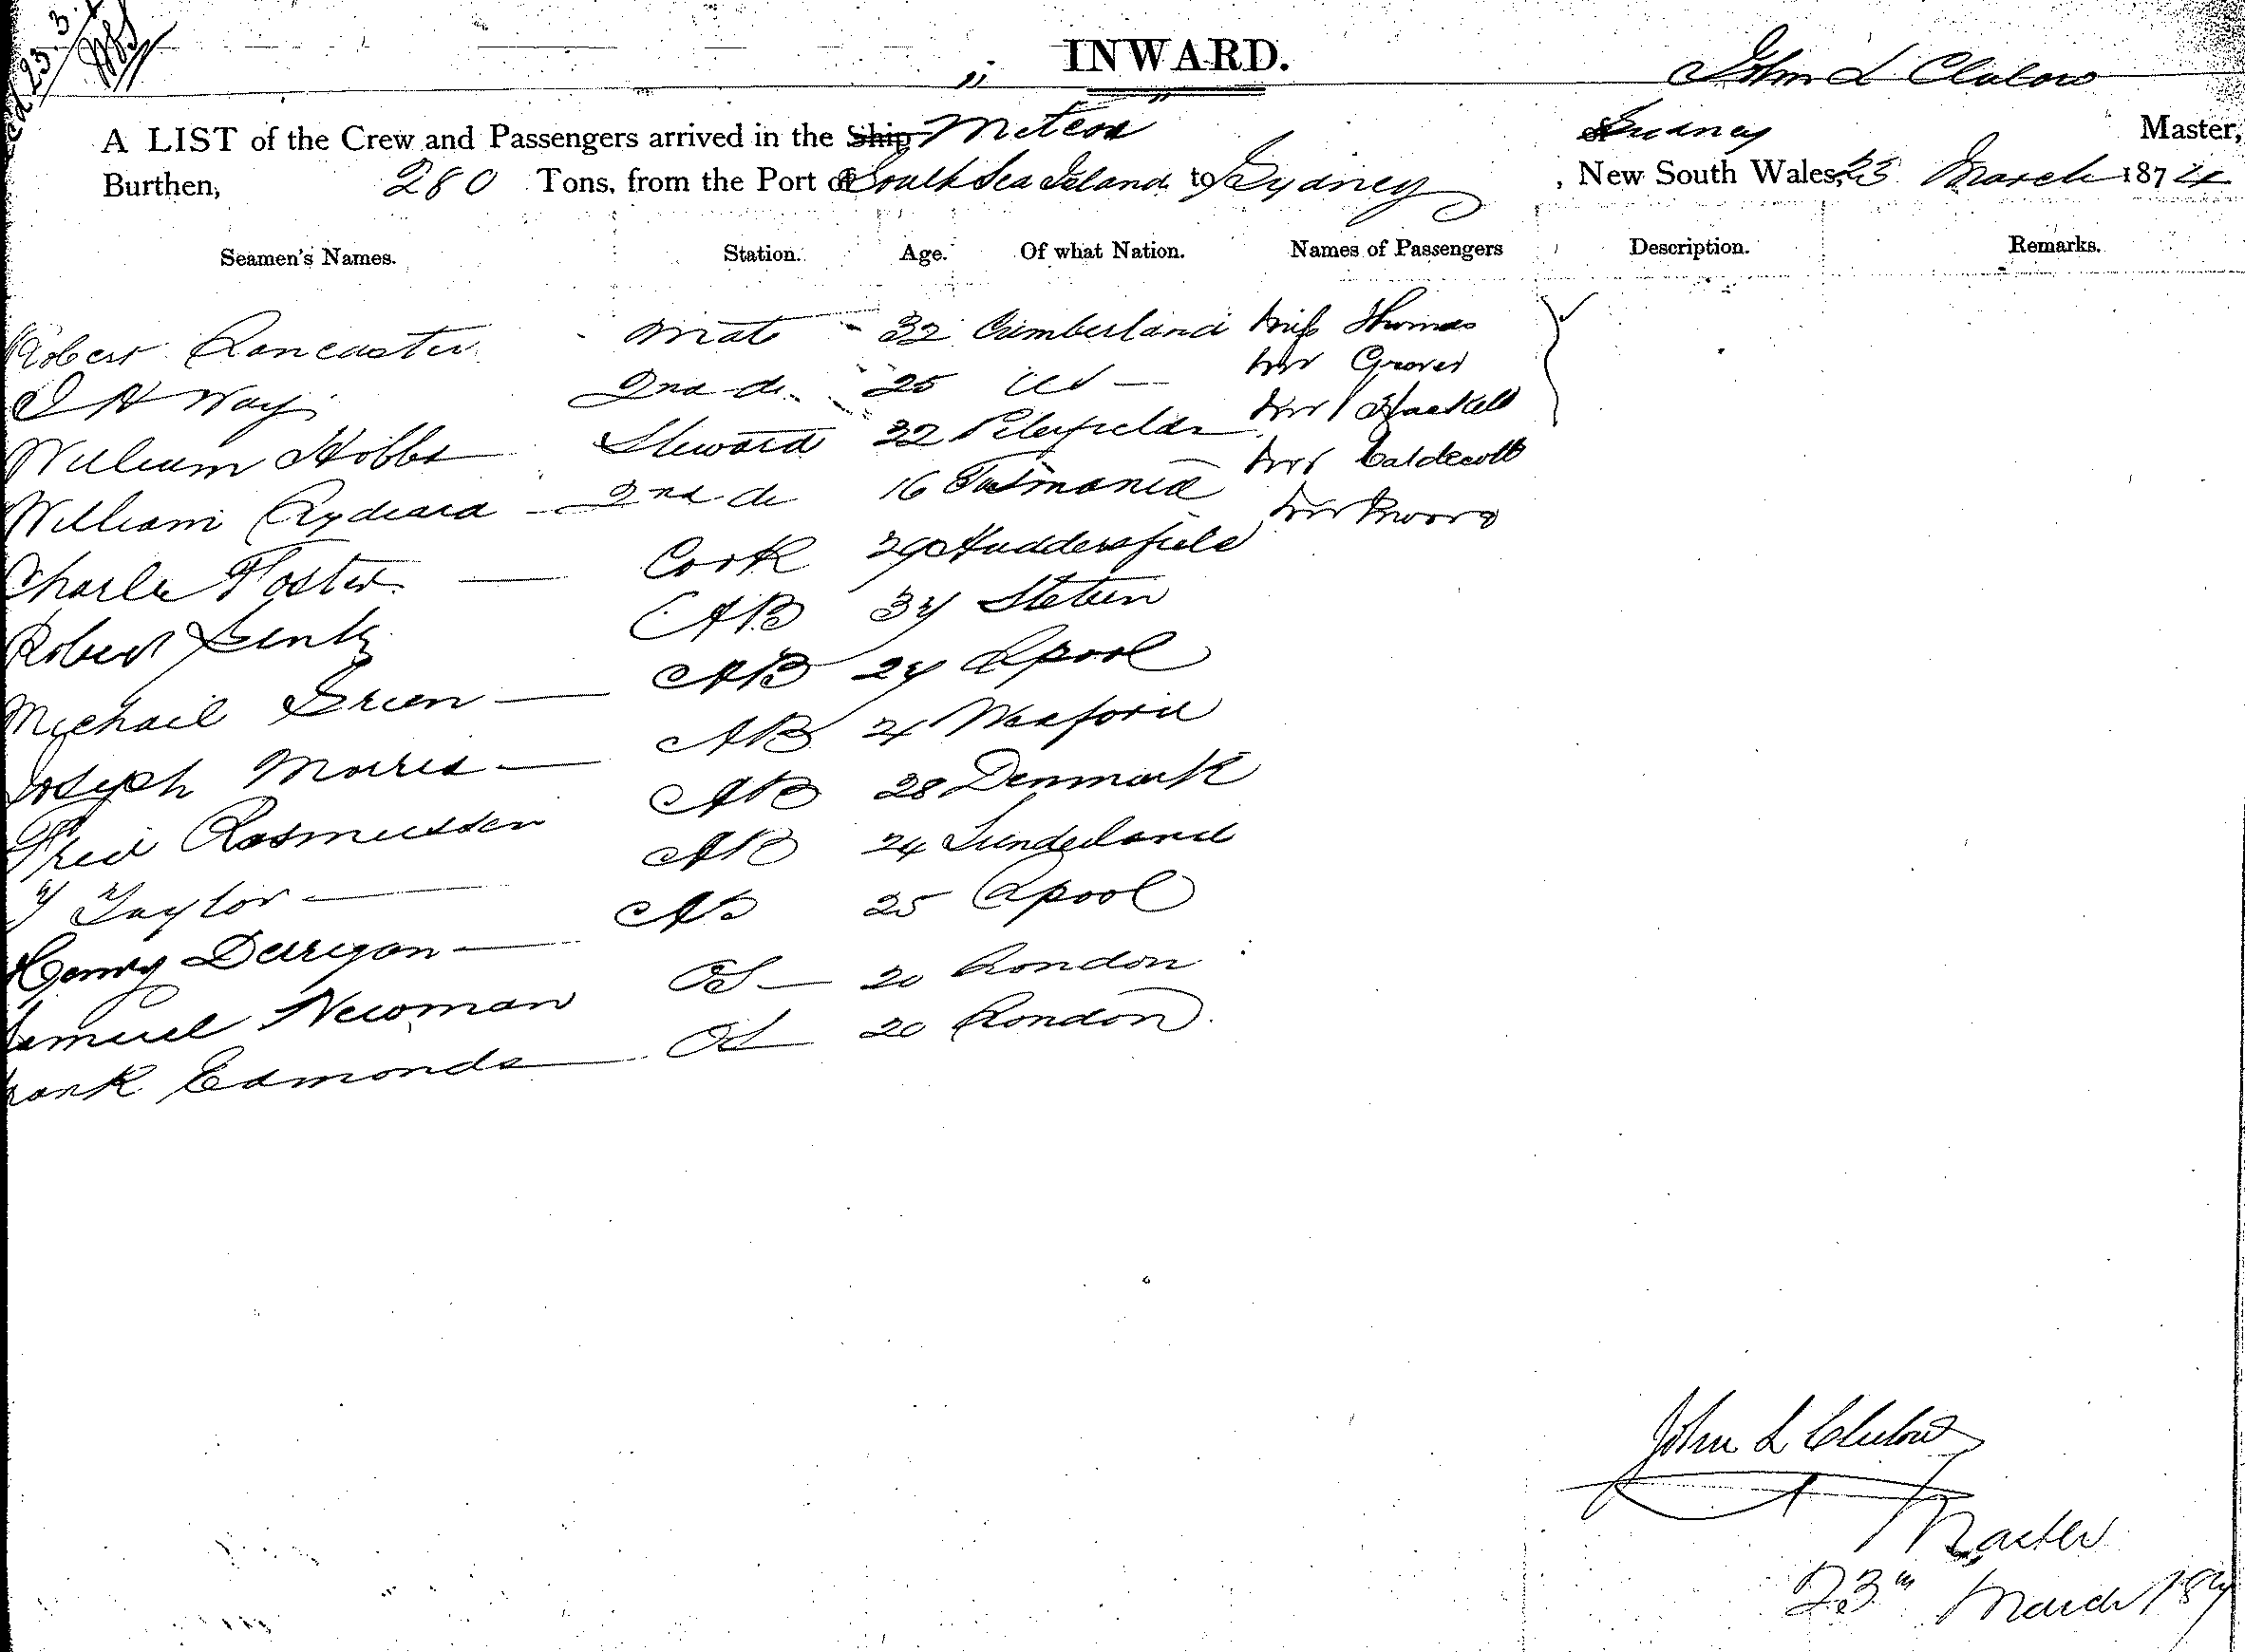 23.3.
INWARD.
John L Clulow
A LIST of the Crew and Passengers arrived in the Ship Meteor of Sydney Master,
Burthen, 280 Tons, from the Port of South Sea Island to Sydney , New South Wales, 23 March 1874
Seamen's Names. Station. Age. Of what Nation. Names of Passengers Description. Remarks.
Robert Lancaster Mate 32 Cumberland Miss Thomas
Mr Groves
J H Way 2nd do 25 US
Mr Haskell
William Hobbs Steward 22 Petersfield
Mr Caldecott
William Rydeard 2nd do 16 Tasmania
Mr Moore
Charles Foster Cook 29 Huddersfield
Robert Lentz AB 34 Stettin
Michail Green AB 24 Lpool
Joseph Morris AB 21 Wexford
Fred Rasmussen AB 28 Denmark
T Taylor AB 24 Sunderland
Henry Derrigan AB 25 Lpool
Samuel Newman OS 20 London
Frank Edmonds OS 20 London
John L Clulow
Master
23rd March 187